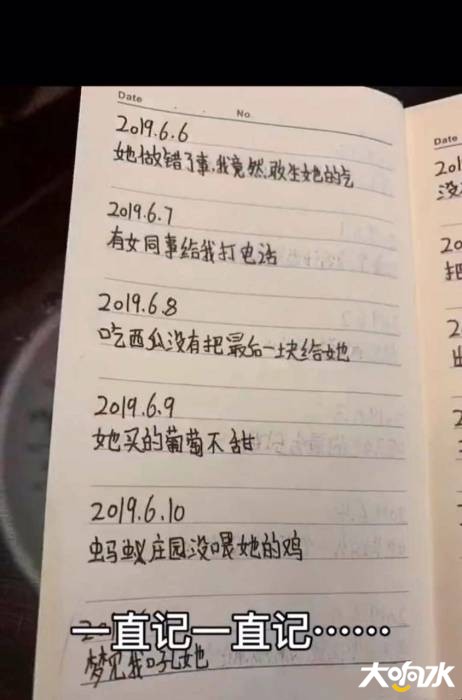 Date
No.
2019.6.6
她做错了事,我竟然敢生她的气
2019.6.7
有女同事给我打电话
2019.6.8
吃西瓜没有把最后一块给她
2019.6.9
她买的葡萄不甜
2019.6.10
蚂蚁庄园没喂她的鸡
一直记一直记……
梦见我吼她
Date
201
没
20
把
2
出
2
大响水